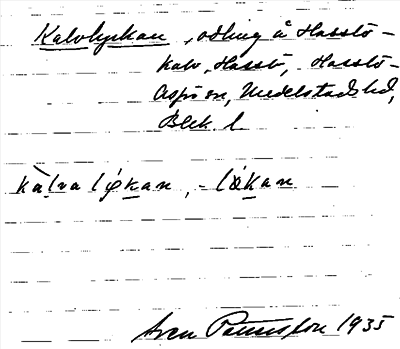 Kalvlyckan, odling å Hasslö-
kalv, Hasslö, Hasslö-
Aspö sn, Medelstads hd,
Blek. l.
kàlvalø̨kan, -lœkan
Sven 1935